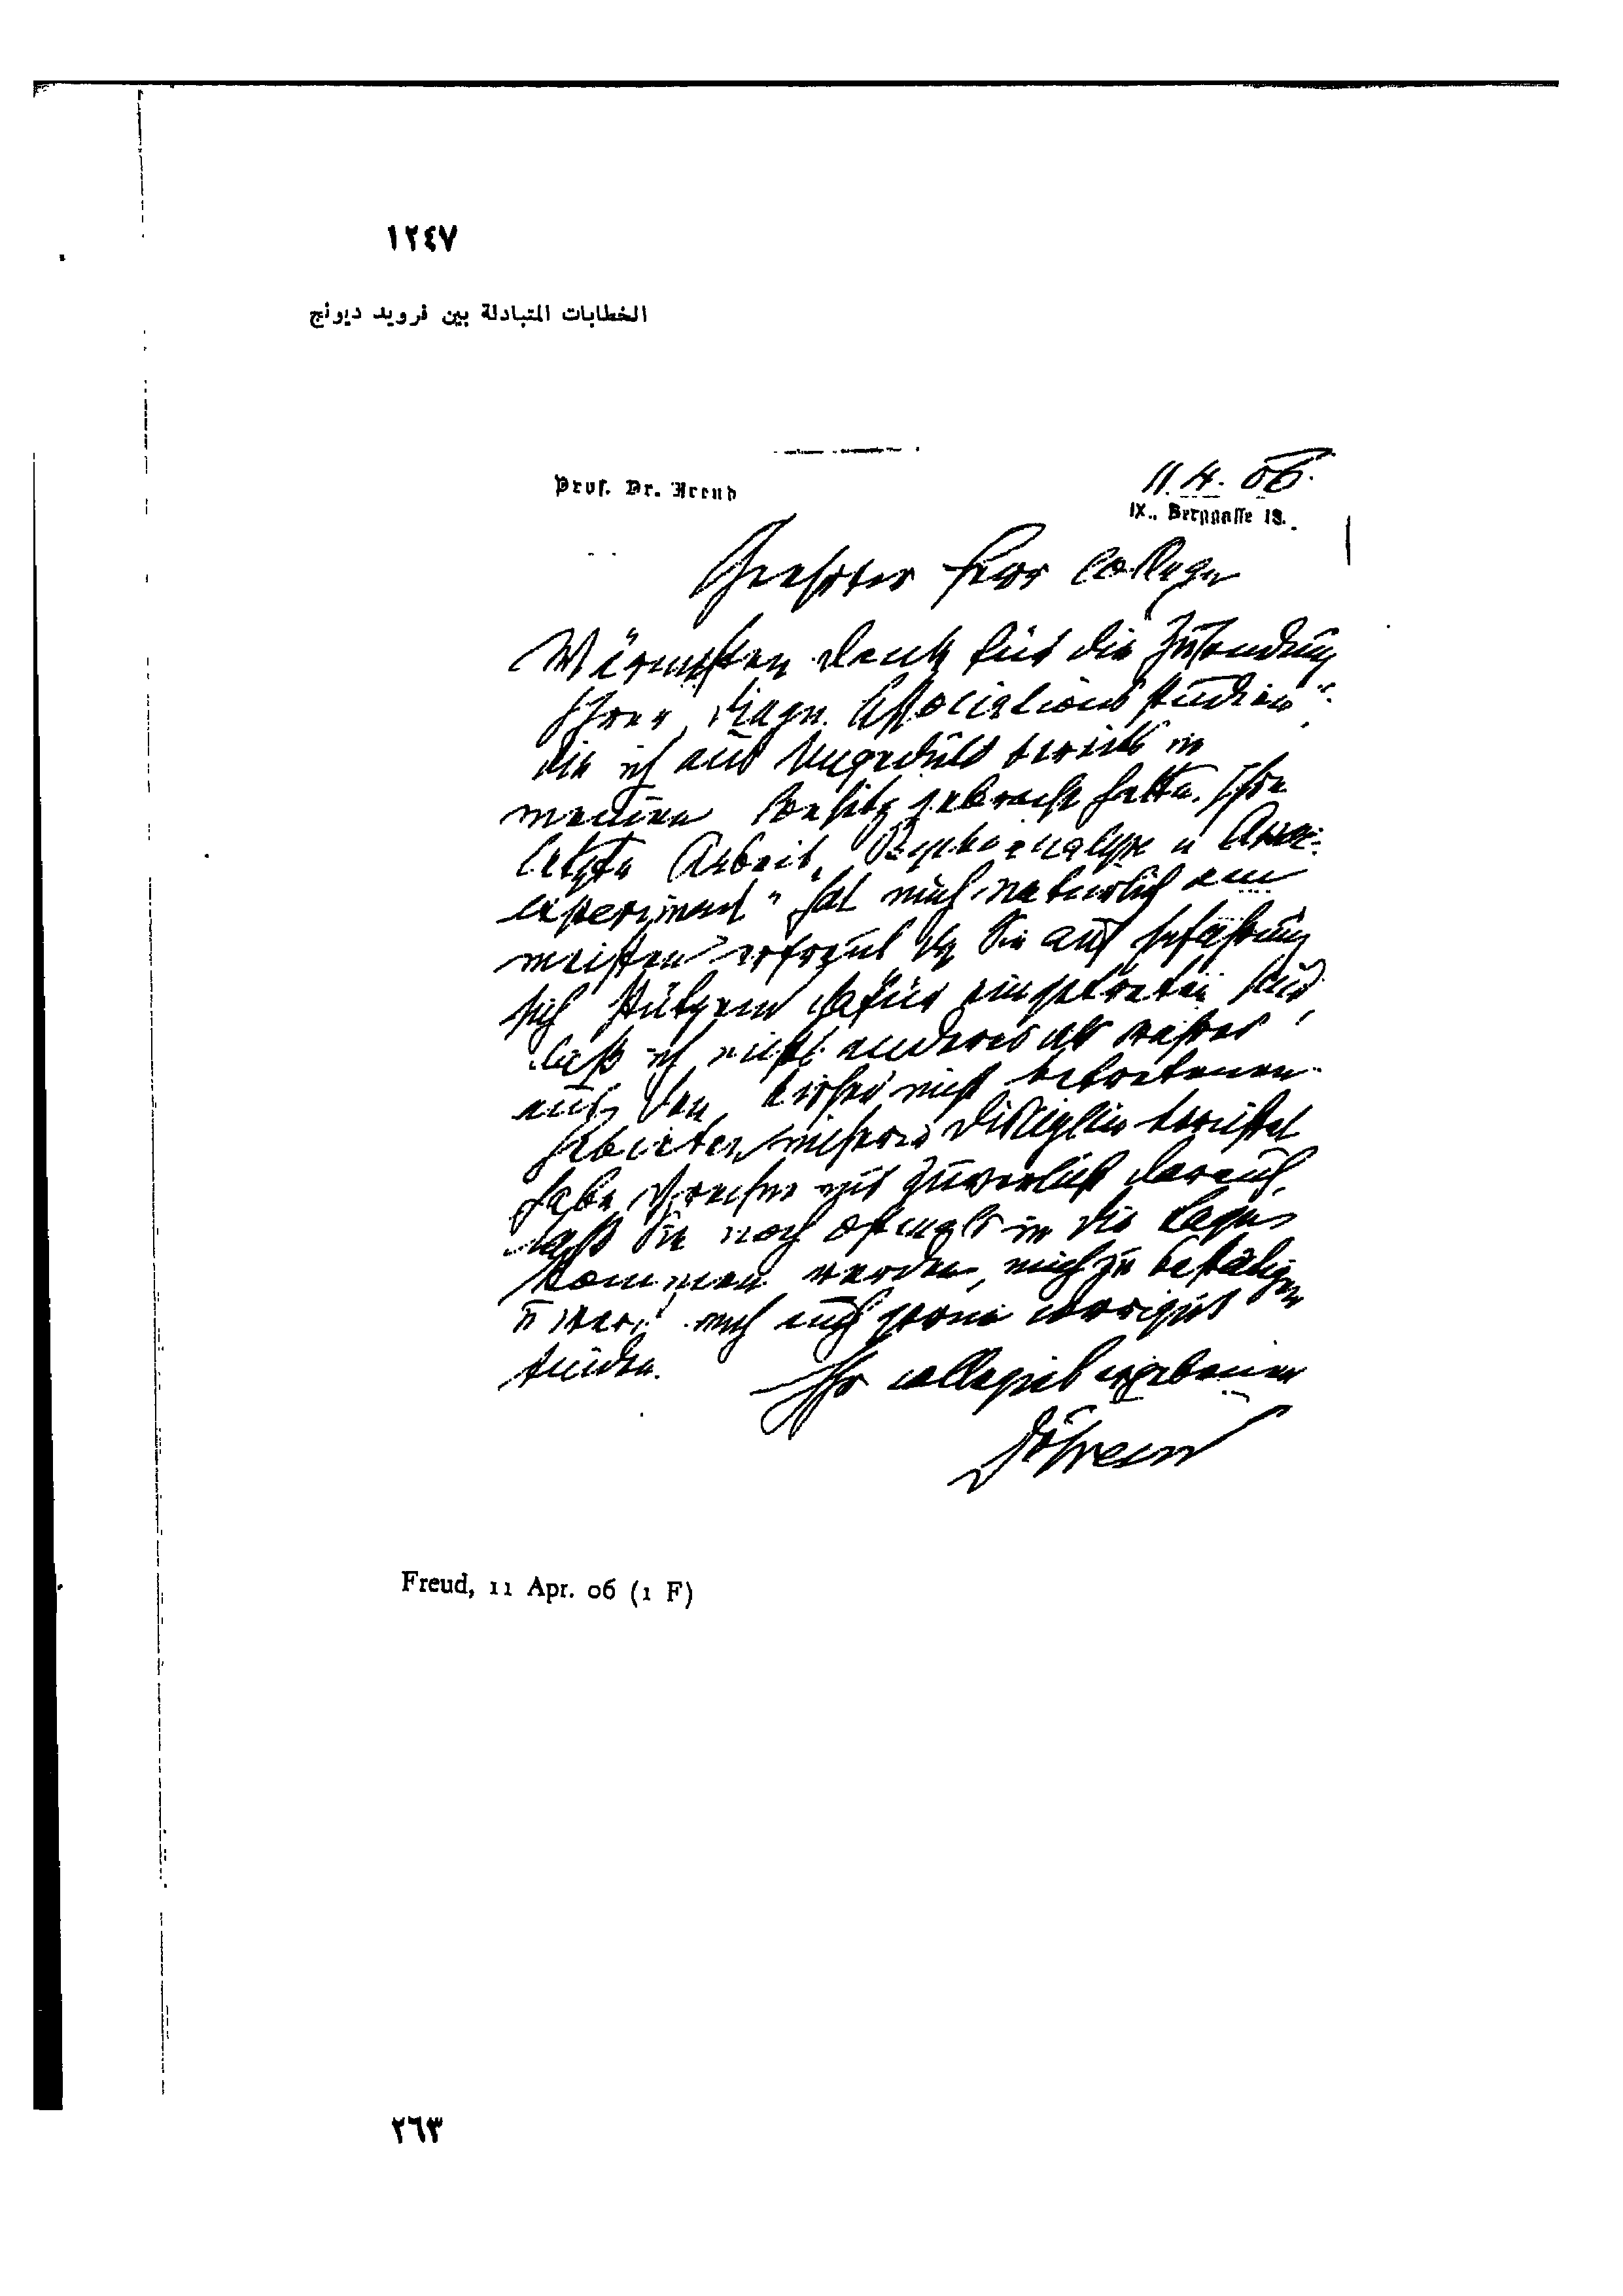 ١٢٤٧
الخطابات المتبادلة بين فرويد ديونج
Prof. Dr. Freud
11. 4. 06.
IX., Berggasse 19.
Geehrter Herr College
Wärmsten Dank für die Zusendung
Ihrer „Diagn. Associationsstudien“
die ich aus Ungeduld bereits in
meinen Besitz gebracht hatte. Ihre
letzte Arbeit „Psychoanalyse u Assoc.
experiment“ hat mich natürlich am
meisten erfreut, da Sie auf Erfahrung
sich stützend dafür eingetreten sind,
daß ich nichts anderes als wahres
aus den bisher nicht betretenen
Gebieten unserer Disciplin berichtet
habe. Ich rechne mit Zuversicht darauf,
daß Sie noch oftmals in die Lage
kommen werden, mich zu bestätigen
u werde mich auch gerne corrigirt
finden.
Ihr collegial ergebener
Dr Freud
Freud, 11 Apr. 06 (1 F)
٢٦٣